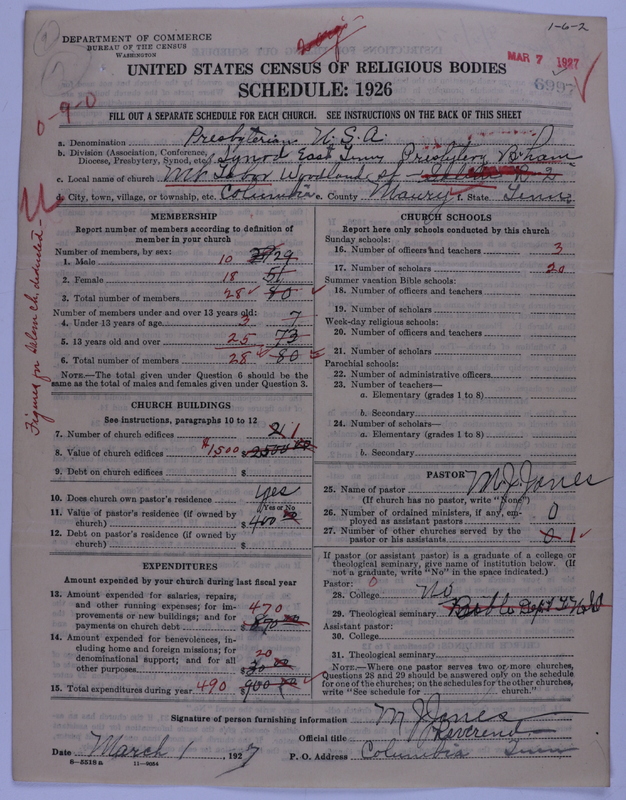 1-6-2
DEPARTMENT OF COMMERCE
BUREAU OF THE CENSUS
WASHINGTON
MAR 7 1927
6997
UNITED STATES CENSUS OF RELIGIOUS BODIES
SCHEDULE: 1926
0-9-0
FILL OUT A SEPARATE SCHEDULE FOR EACH CHURCH. SEE INSTRUCTIONS ON THE BACK OF THIS SHEET
a. Denomination Presbyterian U.S.A.
b. Division (Association, Conference, Diocese, Presbytery, Synod, etc.) Synod East Tenn Presbytery B'ham
c. Local name of church Mt Tabor Woodland St
d. City, town, village, or township, etc. Columbia e. County Maury f. State Tenn
Figures for Salem ch. deducted-
MEMBERSHIP
Report number of members according to definition of
member in your church
Number of members, by sex:
1. Male 10 29
2. Female 18 51
3. Total number of members 28 80
Number of members under and over 13 years old:
4. Under 13 years of age 3 7
5. 13 years old and over 25 73
6. Total number of members 28 80
NOTE.—The total given under Question 6 should be the
same as the total of males and females given under Question 3.
CHURCH BUILDINGS
See instructions, paragraphs 10 to 12
7. Number of church edifices 2 1
8. Value of church edifices $1500 $2500 00
9. Debt on church edifices $
10. Does church own pastor's residence yes
Yes or No
11. Value of pastor's residence (if owned by
church) $400 00
12. Debt on pastor's residence (if owned by
church) $
EXPENDITURES
Amount expended by your church during last fiscal year
13. Amount expended for salaries, repairs,
and other running expenses; for im-
provements or new buildings; and for
payments on church debt 470 $870 00
14. Amount expended for benevolences, in-
cluding home and foreign missions; for
denominational support; and for all
other purposes 20 $30 00
15. Total expenditures during year 490 $900 00
CHURCH SCHOOLS
Report here only schools conducted by this church
Sunday schools:
16. Number of officers and teachers 3
17. Number of scholars 20
Summer vacation Bible schools:
18. Number of officers and teachers
19. Number of scholars
Week-day religious schools:
20. Number of officers and teachers
21. Number of scholars
Parochial schools:
22. Number of administrative officers
23. Number of teachers—
a. Elementary (grades 1 to 8)
b. Secondary
24. Number of scholars—
a. Elementary (grades 1 to 8)
b. Secondary
PASTOR
25. Name of pastor M. J. Jones
(If church has no pastor, write "None")
26. Number of ordained ministers, if any, em-
ployed as assistant pastors 0
27. Number of other churches served by the
pastor or his assistants 0 1
If pastor (or assistant pastor) is a graduate of a college or
theological seminary, give name of institution below. (If
not a graduate, write "No" in the space indicated.)
Pastor: 0
28. College No
29. Theological seminary Bible Dept
Assistant pastor:
30. College
31. Theological seminary
NOTE.—Where one pastor serves two or more churches,
Questions 28 and 29 should be answered only on the schedule
for one of the churches; on the schedules for the other churches,
write "See schedule for church."
Signature of person furnishing information M J Jones
Official title Reverend
Date March 1 1927 P. O. Address Columbia Tenn
8—5518 a 11—9664